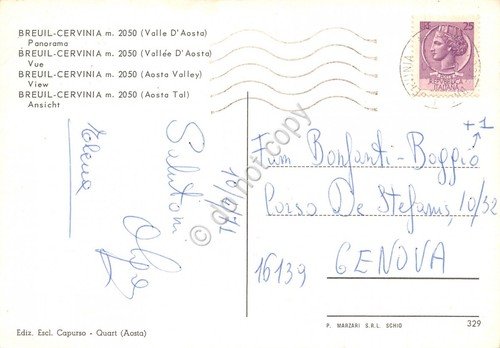 BREUIL-CERVINIA m. 2050 (Valle D'Aosta)
Panorama
BREUIL-CERVINIA m. 2050 (Vallée D'Aosta)
Vue
BREUIL-CERVINIA m. 2050 (Aosta Valley)
View
BREUIL-CERVINIA m. 2050 (Aosta Tal)
Ansicht
25
+1
Elena
Salutoni
Olga
10/8/71
Fum Bonfanti-Boggio
Corso De Stefanis, 10/32
16139 GENOVA
do not copy
Ediz. Escl. Capurso - Quart (Aosta)
P. MARZARI S.R.L. SCHIO
329